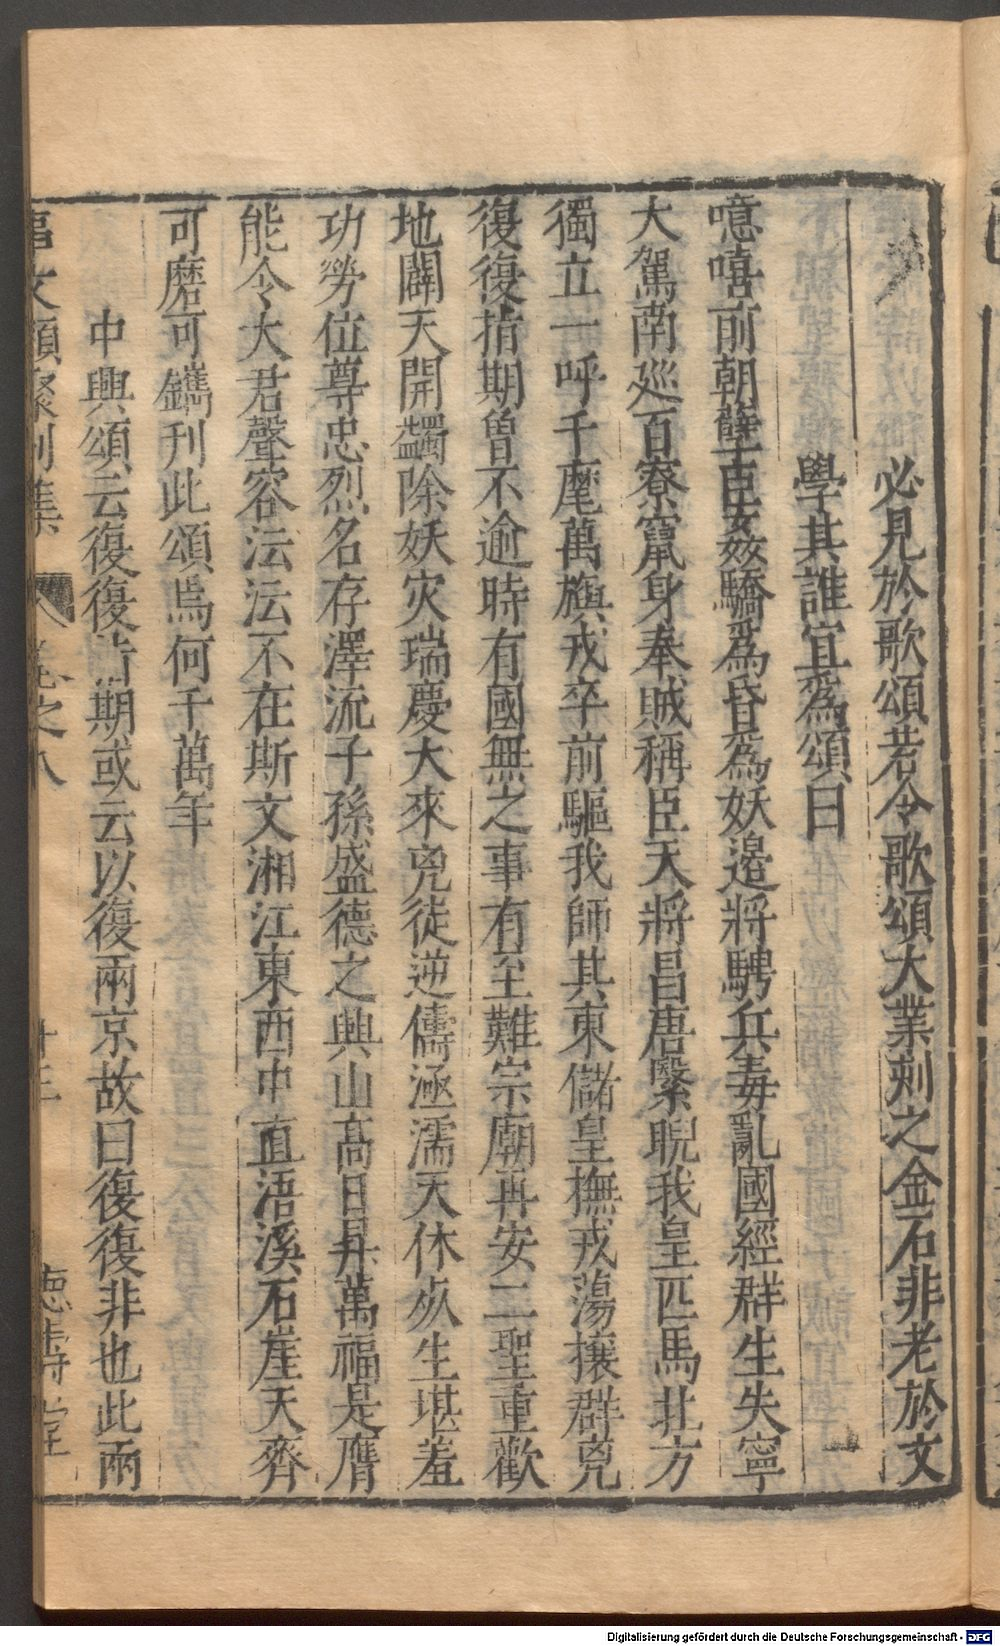 必見於歌頌若令歌頌大業刻之金石非老於文
學其誰宜為頌曰
噫嘻前朝孽臣姦驕為昏為妖邉將騁兵毒亂國經群生失寧
大駕南廵百寮竄身奉賊稱臣天將昌唐繄睨我皇匹馬北方
獨立一呼千麾萬旟戎卒前驅我師其東儲皇撫戎蕩攘群兇
復復指期曾不逾時有國無之事有至難宗廟再安二聖重歡
地闢天開蠲除妖灾瑞慶大來兇徒逆儔涵濡天休死生堪羞
功勞位尊忠烈名存澤流子孫盛德之興山髙日昇萬福是膺
能令大君聲容沄沄不在斯文湘江東西中直浯溪石崖天齊
可磨可鐫刊此頌焉何千萬年
中興頌云復復指期或云以復兩京故曰復復非也此兩
事文類聚別集 卷之八 十三 德壽堂
Digitalisierung gefördert durch die Deutsche Forschungsgemeinschaft - DFG